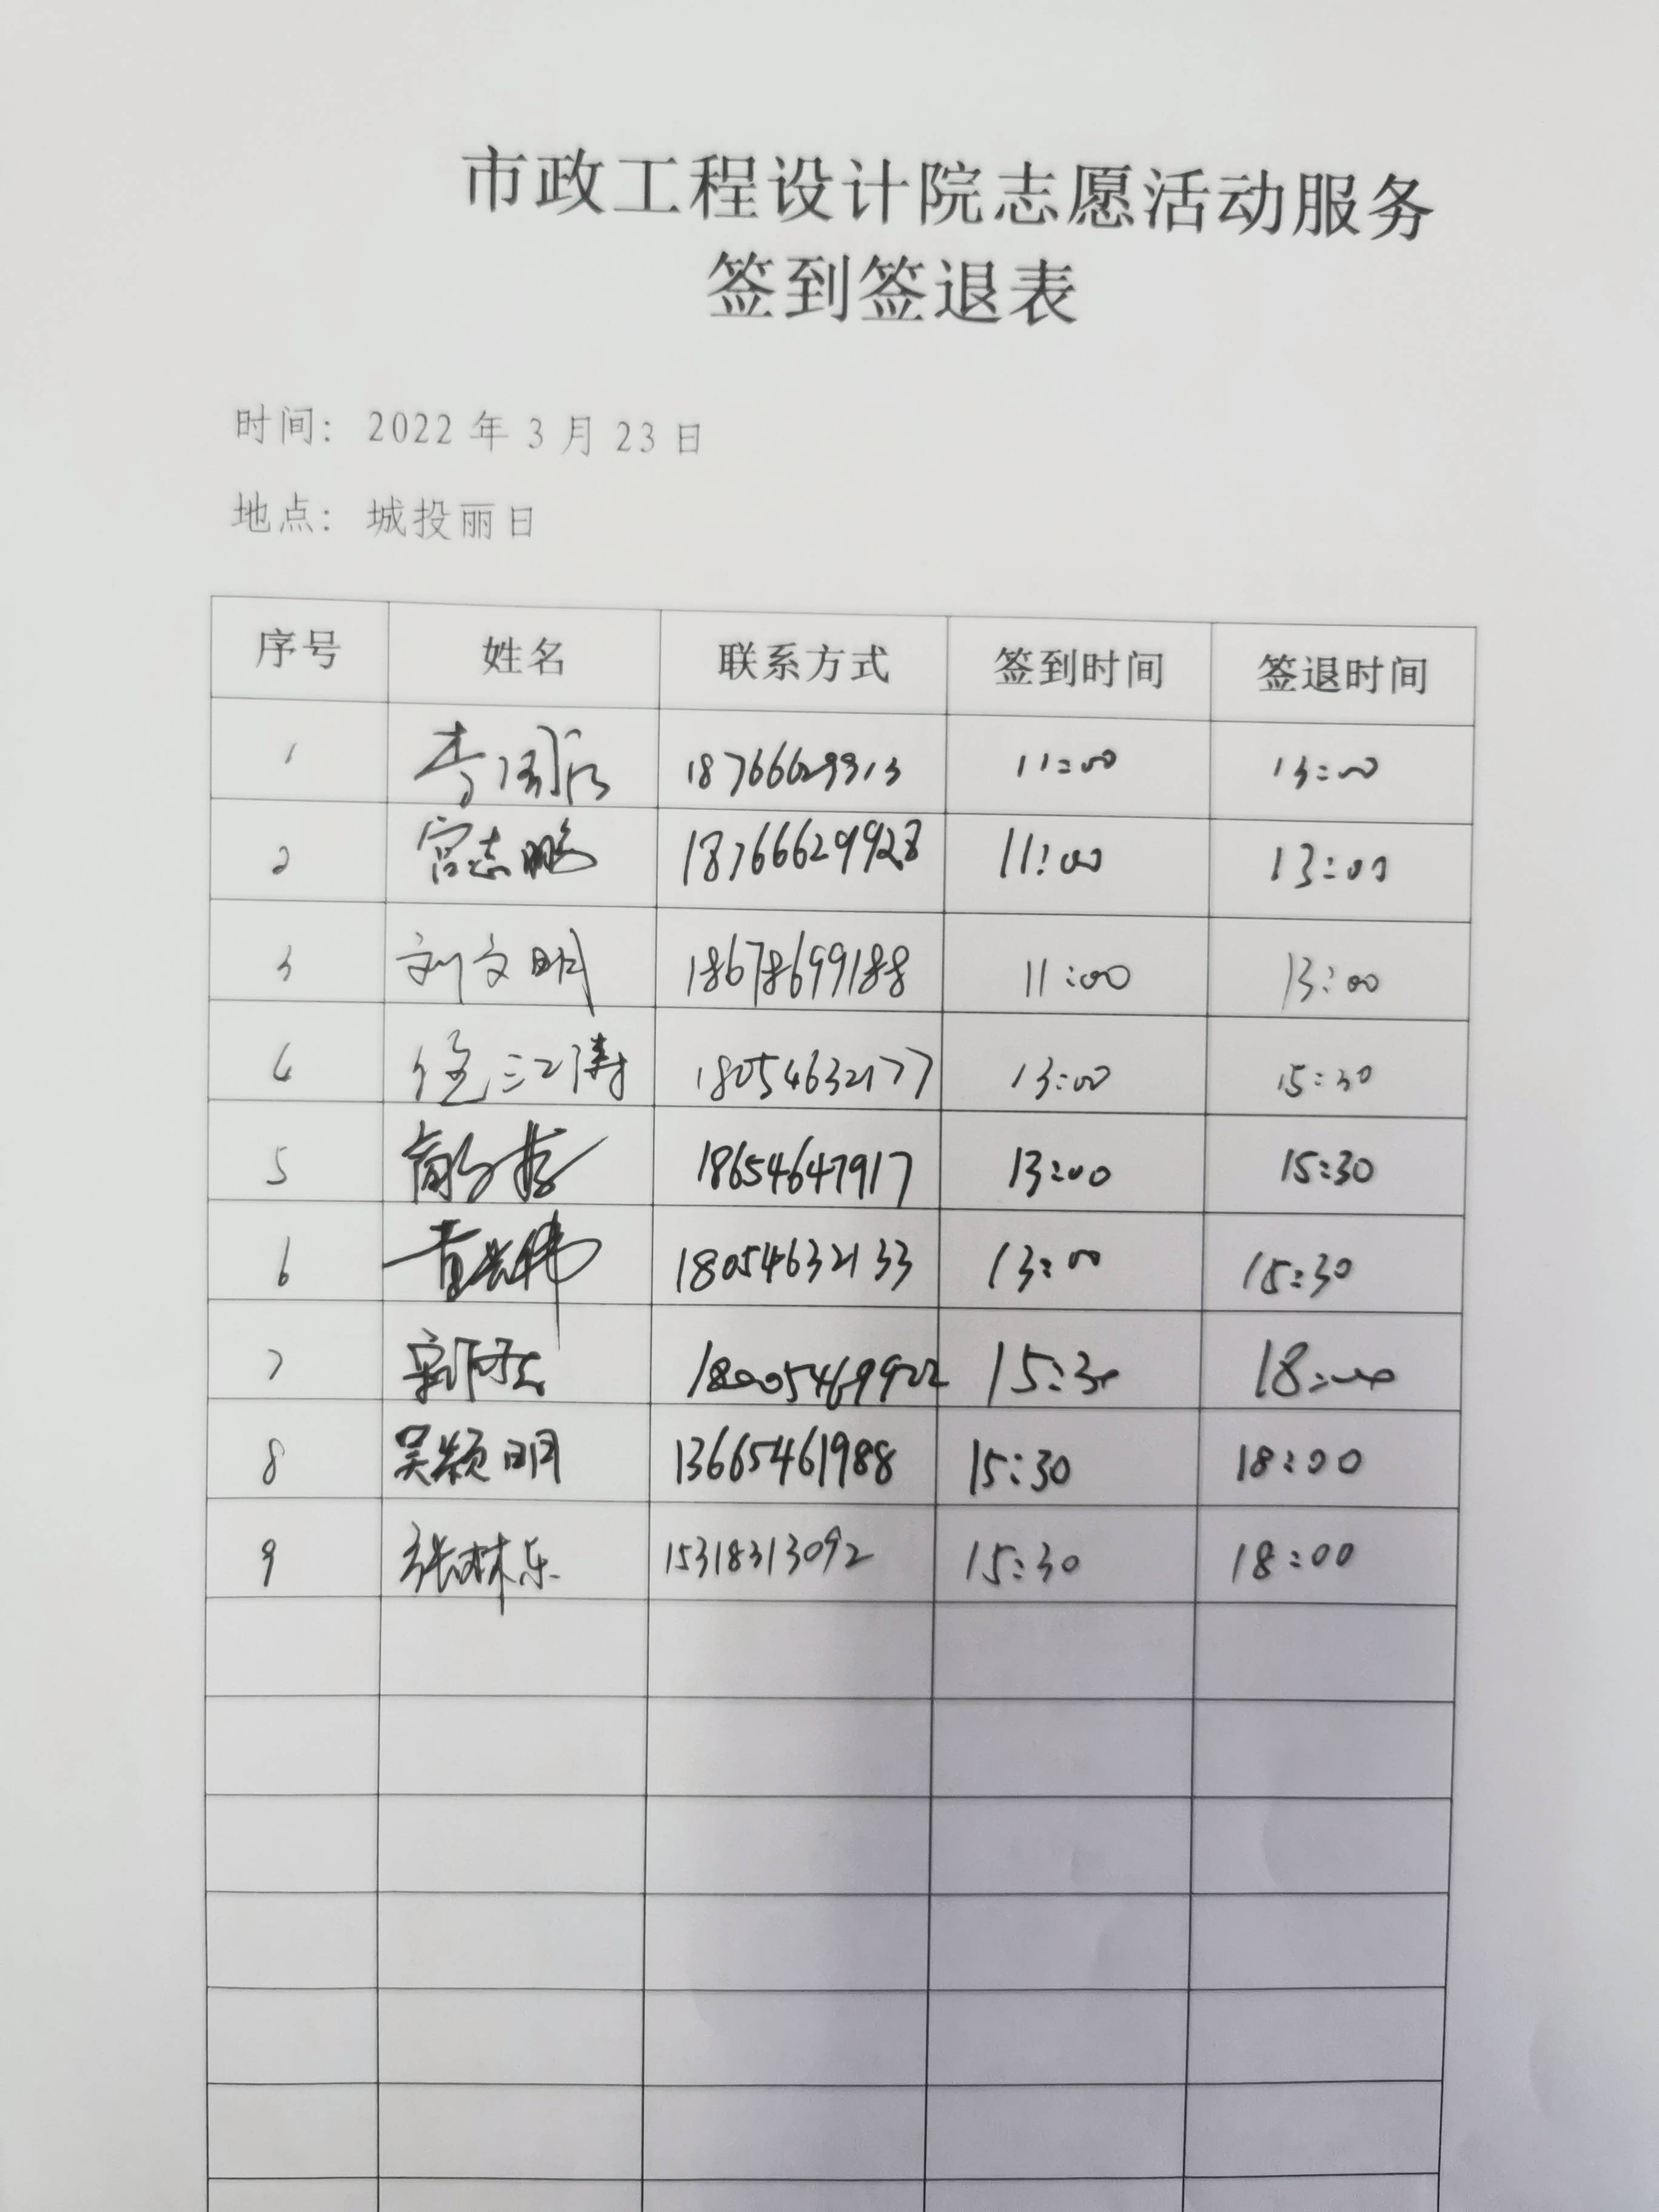 市政工程设计院志愿活动服务
签到签退表
时间: 2022 年 3 月 23 日
地点: 城投丽日
序号 姓名 联系方式 签到时间 签退时间
1 18766629913 11:00 13:00
2 宫志鹏 18766629928 11:00 13:00
3 刘文明 18678699188 11:00 13:00
4 徐江涛 18054632177 13:00 15:30
5 18654647917 13:00 15:30
6 18054632133 13:00 15:30
7 18005469922 15:30 18:00
8 吴颖明 13665461988 15:30 18:00
9 张林乐 15318313092 15:30 18:00